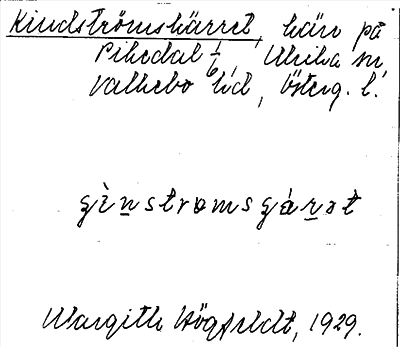 Kindströmskärret, kärr på
Pikedal 1/6, Ulrika sn,
Valkebo hd, Österg. l.
ɕìnstrømsɕá̱rət
Margith Högfeldt, 1929.